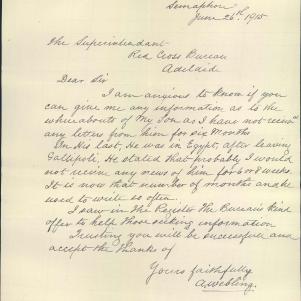 Semaphore
June 26th, 1915
The Superintendant
Red Cross Bureau
Adelaide
Dear Sir
I am anxious to know if you
can give me any information as to the
whereabouts of My Son as I have not receivd
any letter from him for six Months
On His last, He was in Egypt, after leaving
Gallipoli, He stated that probably I would
not receive any news of him for 6 or 8 weeks.
It is now that number of months and he
used to write so often.
I saw in the Register The Bureau's kind
offer to help those seeking information
Trusting you will be successful and
accept the thanks of
Yours faithfully
A. Webling.